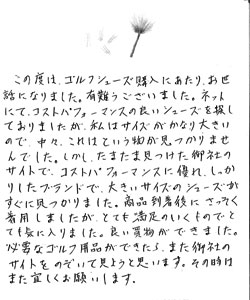 この度は、ゴルフシューズ購入にあたり、お世
話になりました。有難うございました。ネット
にて、コストパフォーマンスの良いシューズを探し
ておりましたが、私はサイズがかなり大きい
ので、中々、これはという物が見つかりませ
んでした。しかし、たまたま見つけた御社の
サイトで、コストパフォーマンスに優れ、しっか
りしたブランドで、大きいサイズのシューズが
すぐに見つかりました。商品到着後にさっそく
着用しましたが、とても満足のいくものでとて
も気に入りました。良い買物ができました。
必要なゴルフ用品ができたら、また御社の
サイトをのぞいて見ようと思います。その時は
また宜しくお願いします。